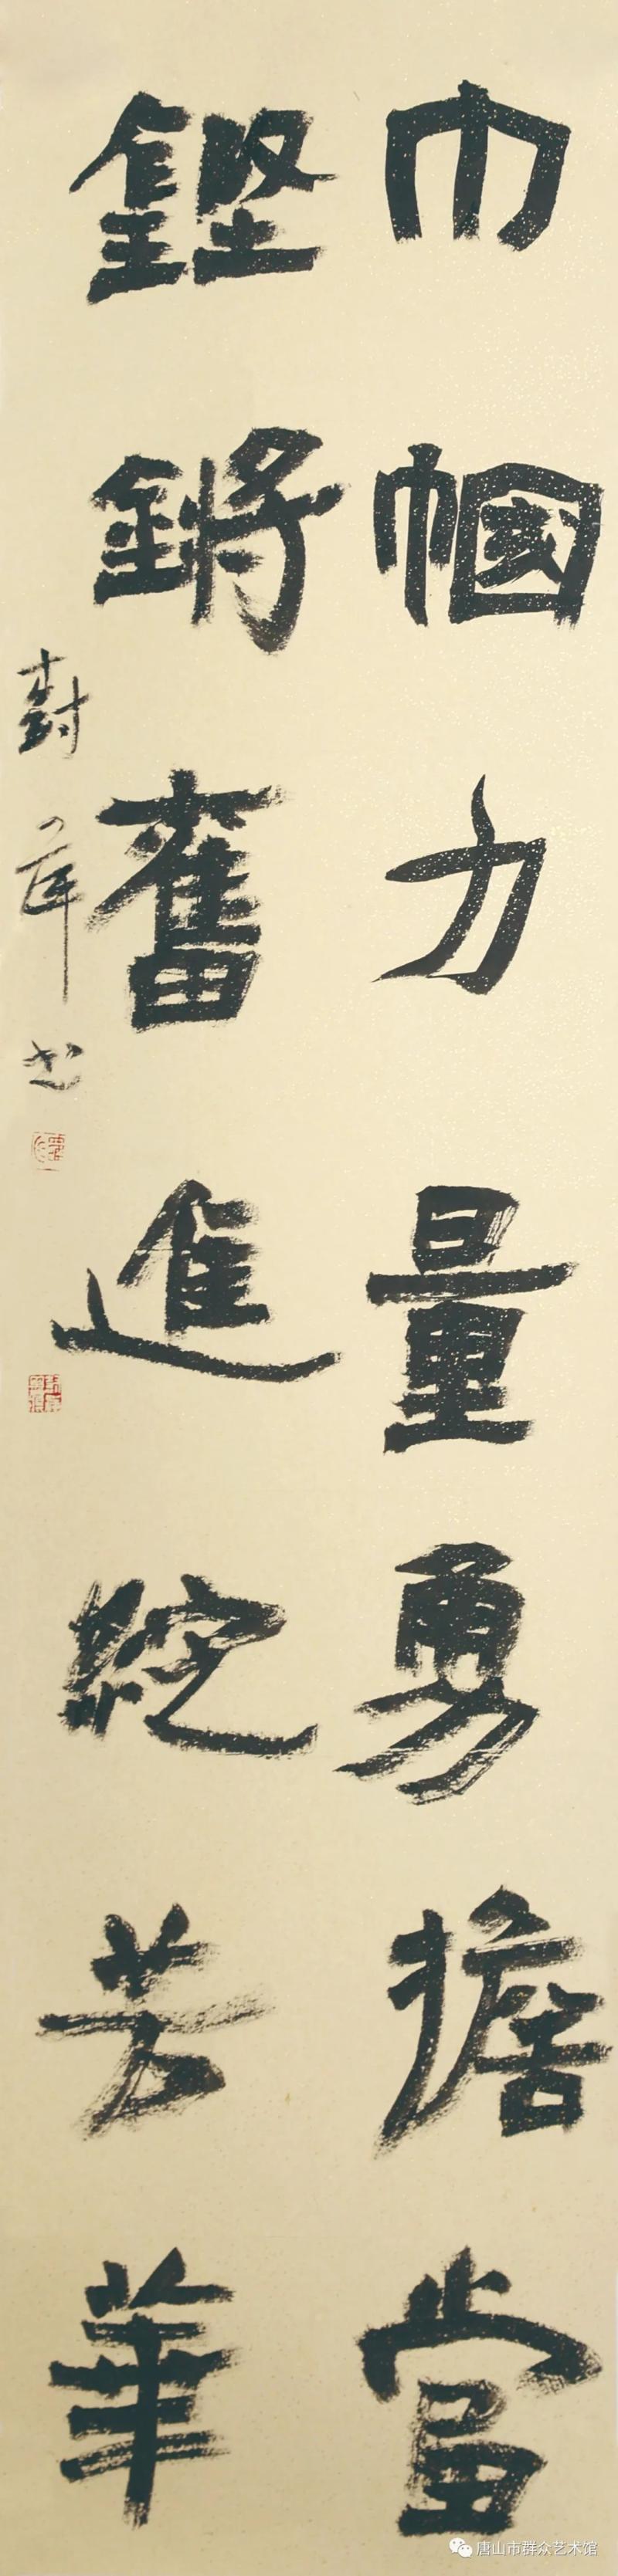 巾帼力量勇擔當
鏗鏘奮進綻芳華
唐山市群众艺术馆